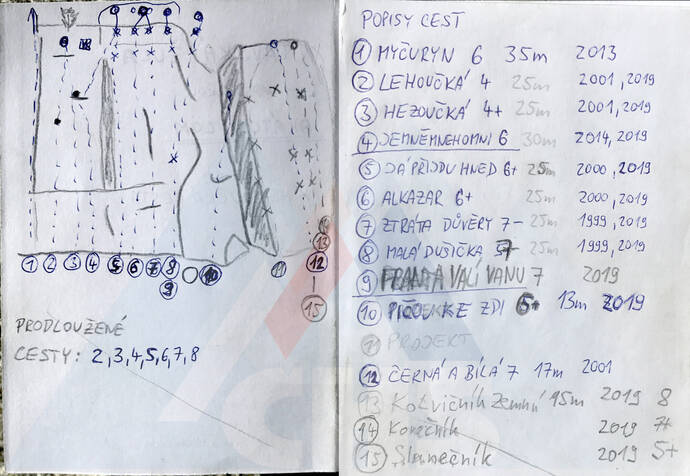 1 2 3 4 5 6 7 8 10 11 12
9
13
15
PRODLOUŽENÉ
CESTY: 2,3,4,5,6,7,8
POPISY CEST
1 MYČURYN 6 35m 2013
2 LEHOUČKÁ 4 25m 2001, 2019
3 HEZOUČKÁ 4+ 25m 2001, 2019
4 JEMNĚMNEHOMNI 6 30m 2014, 2019
5 JÁ PŘIJDU HNED 6+ 25m 2000, 2019
6 ALKAZAR 6+ 25m 2000, 2019
7 ZTRÁTA DŮVĚRY 7- 25m 1999, 2019
8 MALÁ DUŠIČKA 7 25m 1999, 2019
9 FRANTA VALÍ VANU 7 2019
10 KE ZDI 6+ 13m 2019
11 PROJEKT
12 ČERNÁ A BÍLÁ 7 17m 2001
13 Kotvičník zemní 15m 2019 8
14 2019 7+
15 Slunečník 2019 5+